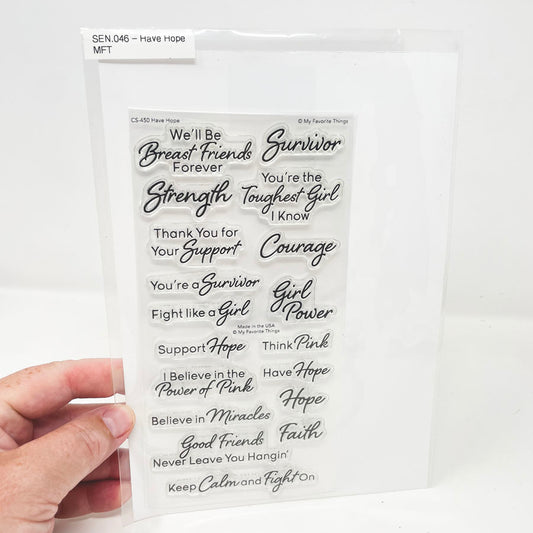 SEN.046 – Have Hope
MFT
CS-450 Have Hope
© My Favorite Things
We'll Be
Breast Friends
Forever
Survivor
Strength
You're the
Toughest Girl
I Know
Thank You for
Your Support
Courage
You're a Survivor
Fight like a Girl
Girl
Power
Made in the USA
© My Favorite Things
Support Hope
Think Pink
I Believe in the
Power of Pink
Have Hope
Hope
Believe in Miracles
Good Friends
Never Leave You Hangin'
Faith
Keep Calm and Fight On